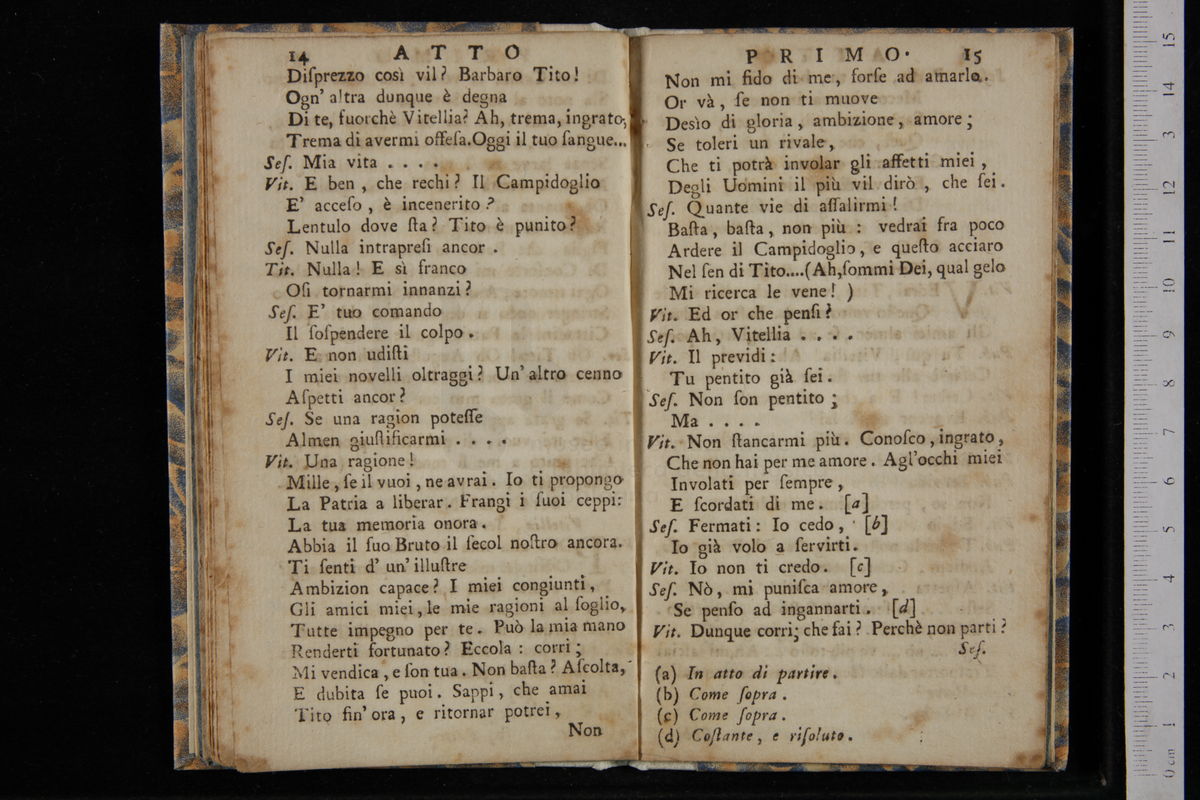 14 ATTO
Diſprezzo così vil? Barbaro Tito!
Ogn' altra dunque è degna
Di te, fuorchè Vitellia? Ah, trema, ingrato,
Trema di avermi offeſa. Oggi il tuo ſangue...
Seſ. Mia vita . . . .
Vit. E ben, che rechi? Il Campidoglio
E' acceſo, è incenerito?
Lentulo dove ſta? Tito è punito?
Seſ. Nulla intrapreſi ancor.
Tit. Nulla! E sì franco
Oſi tornarmi innanzi?
Seſ. E' tuo comando
Il ſoſpendere il colpo.
Vit. E non udiſti
I miei novelli oltraggi? Un' altro cenno
Aſpetti ancor?
Seſ. Se una ragion poteſſe
Almen giuſtificarmi . . . .
Vit. Una ragione!
Mille, ſe il vuoi, ne avrai. Io ti propongo
La Patria a liberar. Frangi i ſuoi ceppi:
La tua memoria onora.
Abbia il ſuo Bruto il ſecol noſtro ancora.
Ti ſenti d' un' illuſtre
Ambizion capace? I miei congiunti,
Gli amici miei, le mie ragioni al ſoglio,
Tutte impegno per te. Può la mia mano
Renderti fortunato? Eccola: corri;
Mi vendica, e ſon tua. Non baſta? Aſcolta,
E dubita ſe puoi. Sappi, che amai
Tito fin' ora, e ritornar potrei,
Non
PRIMO. 15
Non mi fido di me, forſe ad amarlo.
Or và, ſe non ti muove
Desìo di gloria, ambizione, amore;
Se toleri un rivale,
Che ti potrà involar gli affetti miei,
Degli Uomini il più vil dirò, che ſei.
Seſ. Quante vie di aſſalirmi!
Baſta, baſta, non più: vedrai fra poco
Ardere il Campidoglio, e queſto acciaro
Nel ſen di Tito....(Ah, ſommi Dei, qual gelo
Mi ricerca le vene! )
Vit. Ed or che penſi?
Seſ. Ah, Vitellia . . . .
Vit. Il previdi:
Tu pentito già ſei.
Seſ. Non ſon pentito;
Ma . . . .
Vit. Non ſtancarmi più. Conoſco, ingrato,
Che non hai per me amore. Agl'occhi miei
Involati per ſempre,
E ſcordati di me. [a]
Seſ. Fermati: Io cedo, [b]
Io già volo a ſervirti.
Vit. Io non ti credo. [c]
Seſ. Nò, mi puniſca amore,
Se penſo ad ingannarti. [d]
Vit. Dunque corri; che fai? Perchè non parti?
Seſ.
(a) In atto di partire.
(b) Come ſopra.
(c) Come ſopra.
(d) Coſtante, e riſoluto.
0 cm 1 2 3 4 5 6 7 8 9 10 11 12 13 14 15